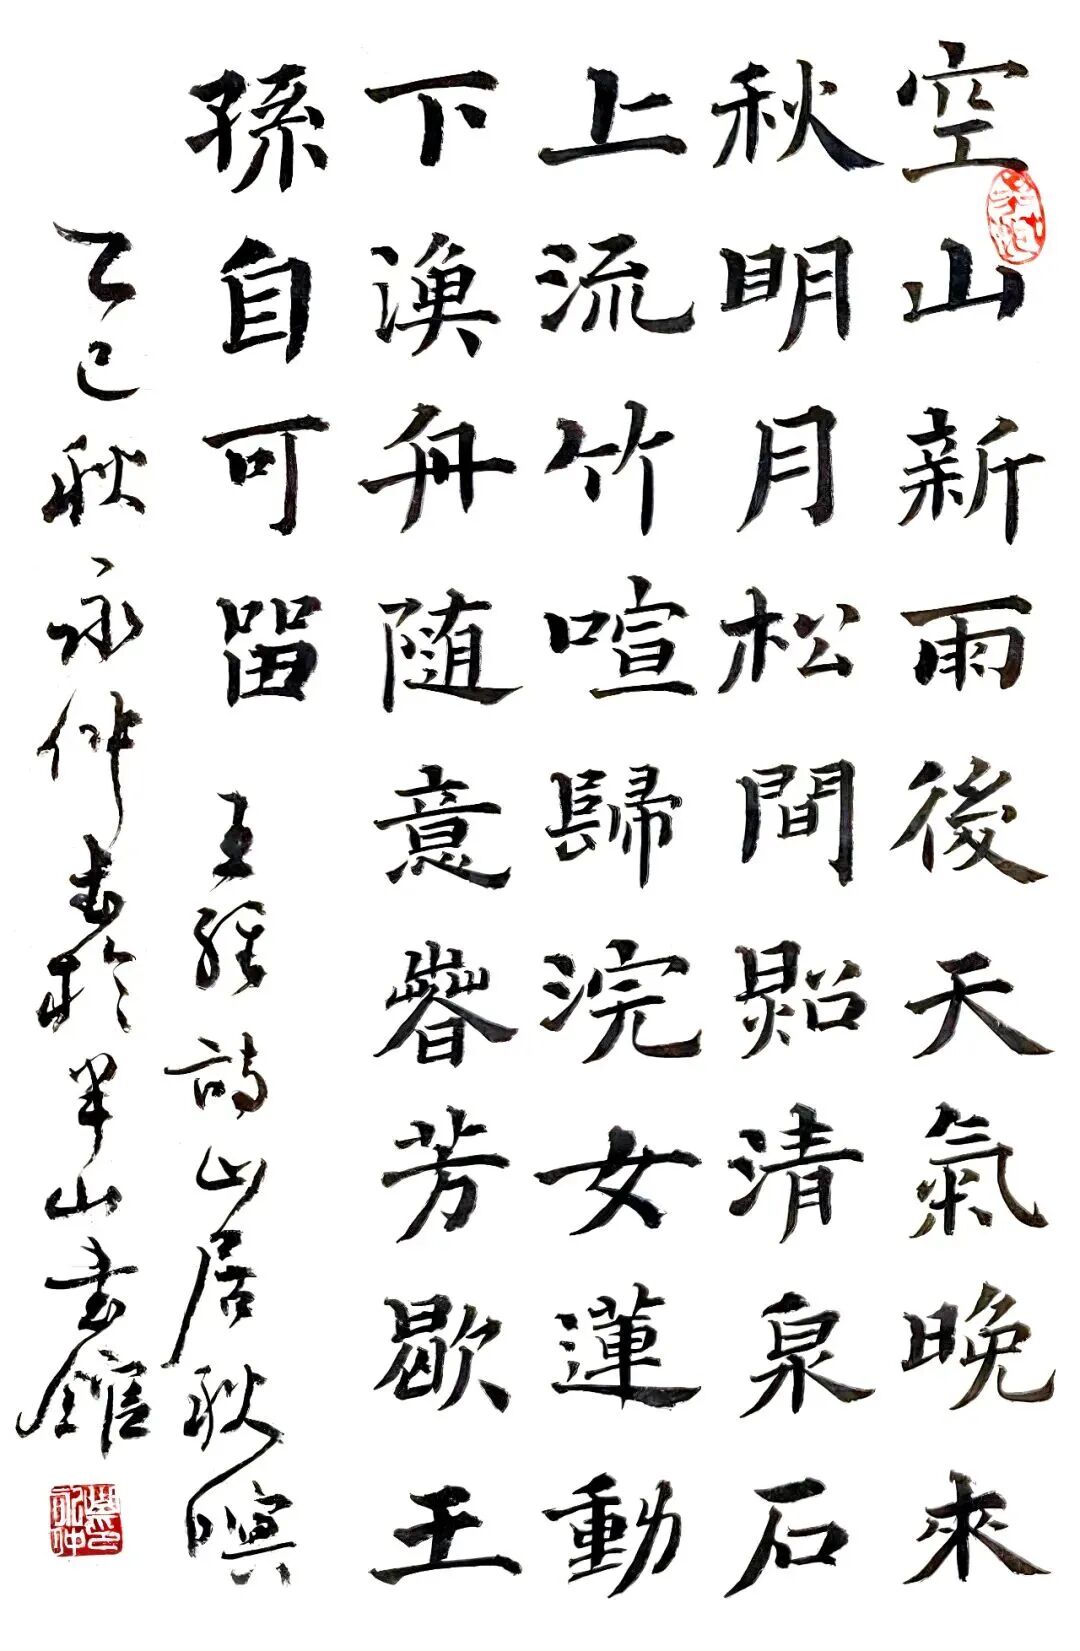 空山新雨後天氣晚來
秋明月松間照清泉石
上流竹喧歸浣女蓮動
下漁舟随意春芳歇王
孫自可留 王維詩山居秋暝
乙巳秋永仲書於半山書館